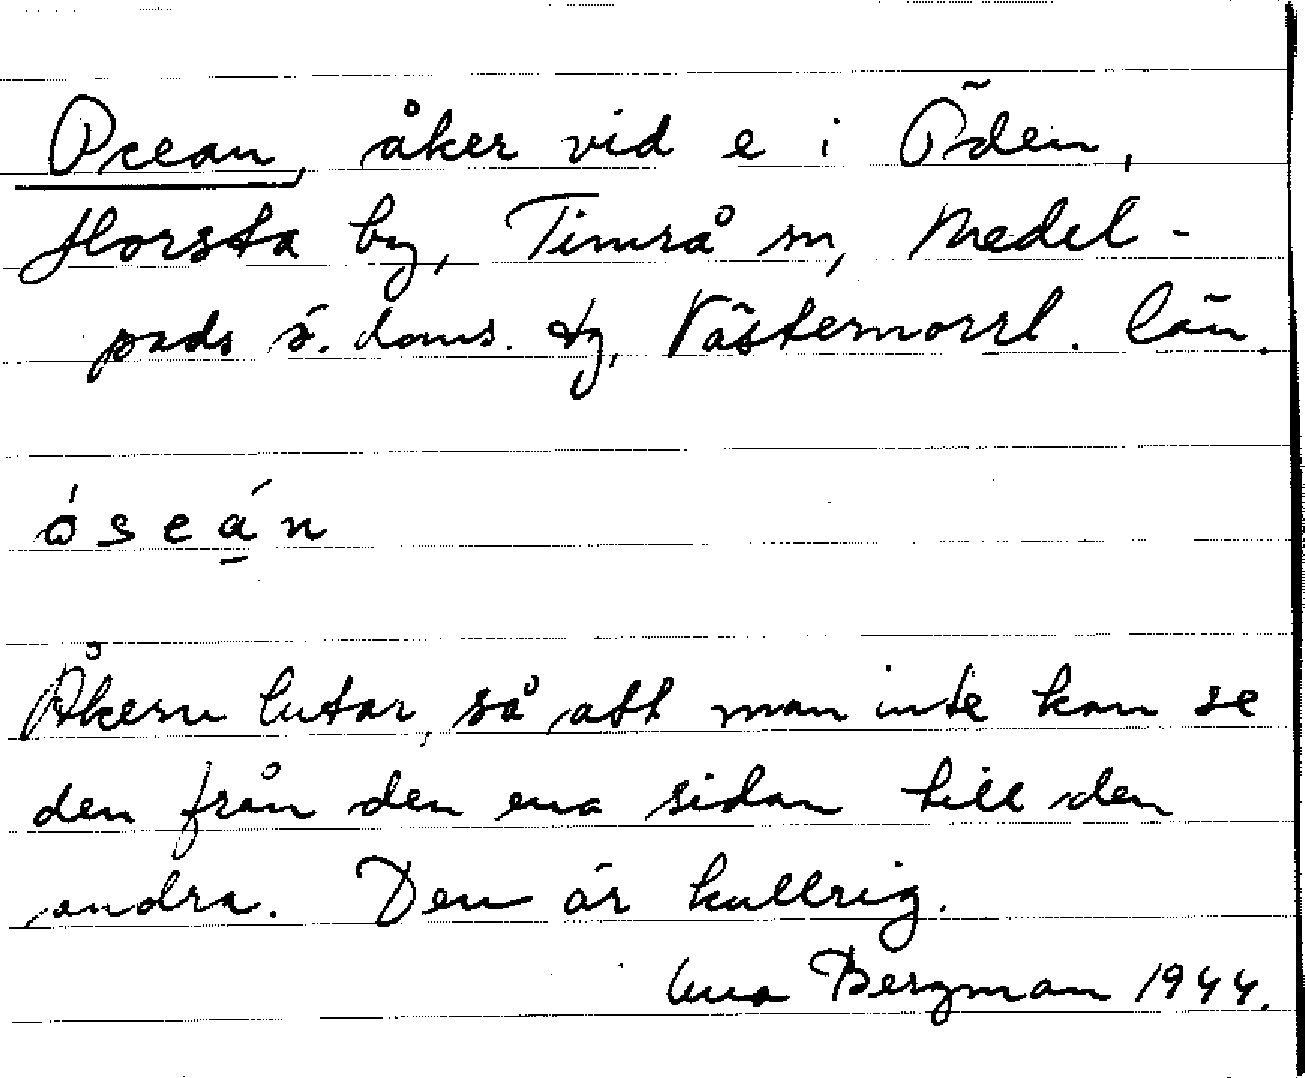 Ocean, åker vid e i Öden,
Horsta by, Timrå sn, Medel-
pads ö. doms. tg, Västernorrl. län.
óseán
Åkern lutar, så att man inte kan se
den från den ena sidan till den
andra. Den är kullrig.
Bergman 1944.